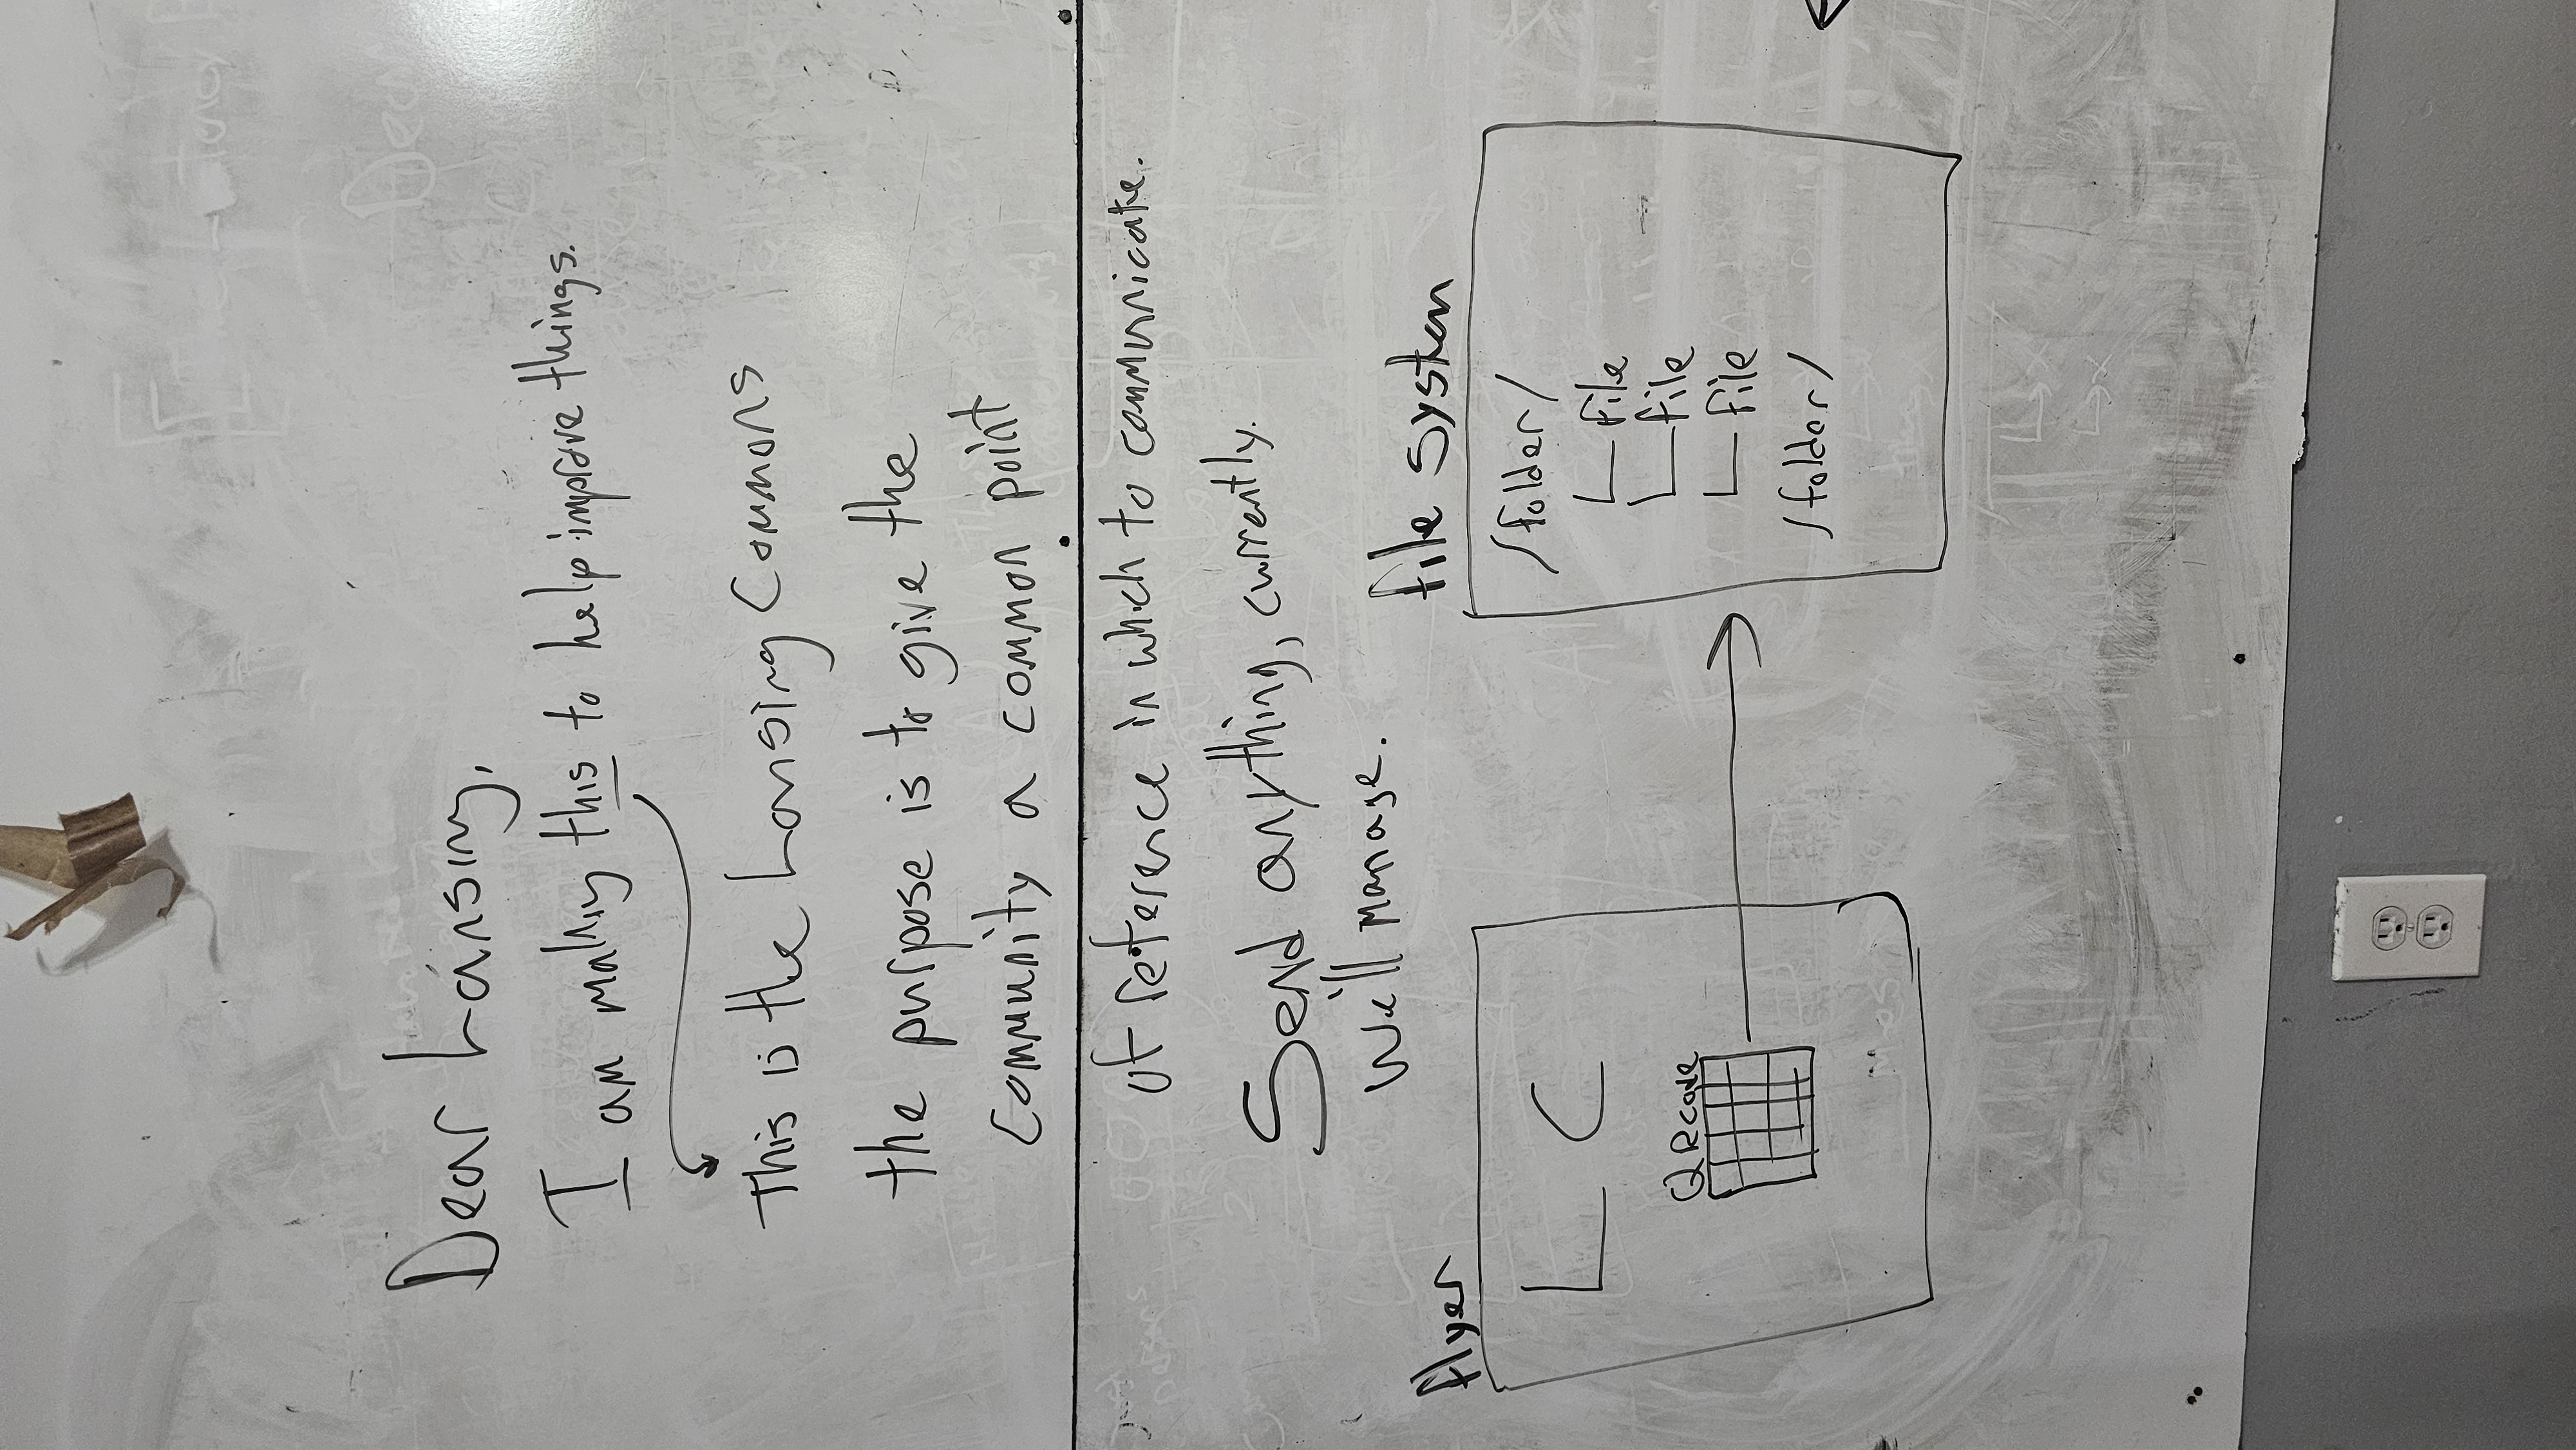 Dear Lansing,
I am making this to help improve things.
This is the Lansing Commons
the purpose is to give the
community a common point
of reference in which to communicate.
Send anything, currently.
We'll manage.
flyer
L C
QR code
file system
/folder/
file
file
file
/folder/